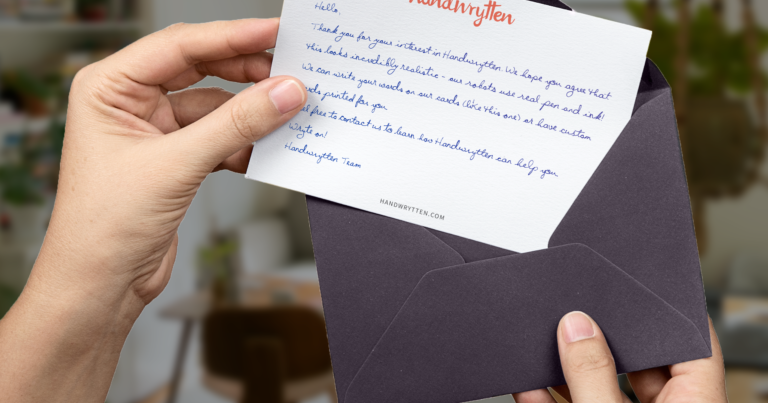 Handwrytten
Hello,
Thank you for your interest in Handwrytten. We hope you agree that
this looks incredibly realistic - our robots use real pen and ink!
We can write your words on our cards (like this one) or have custom
printed for you.
free to contact us to learn how Handwrytten can help you.
Wryte on!
Handwrytten Team
HANDWRYTTEN.COM